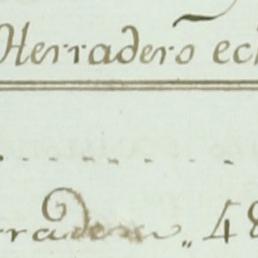 Herradero ec
rradero „ 48